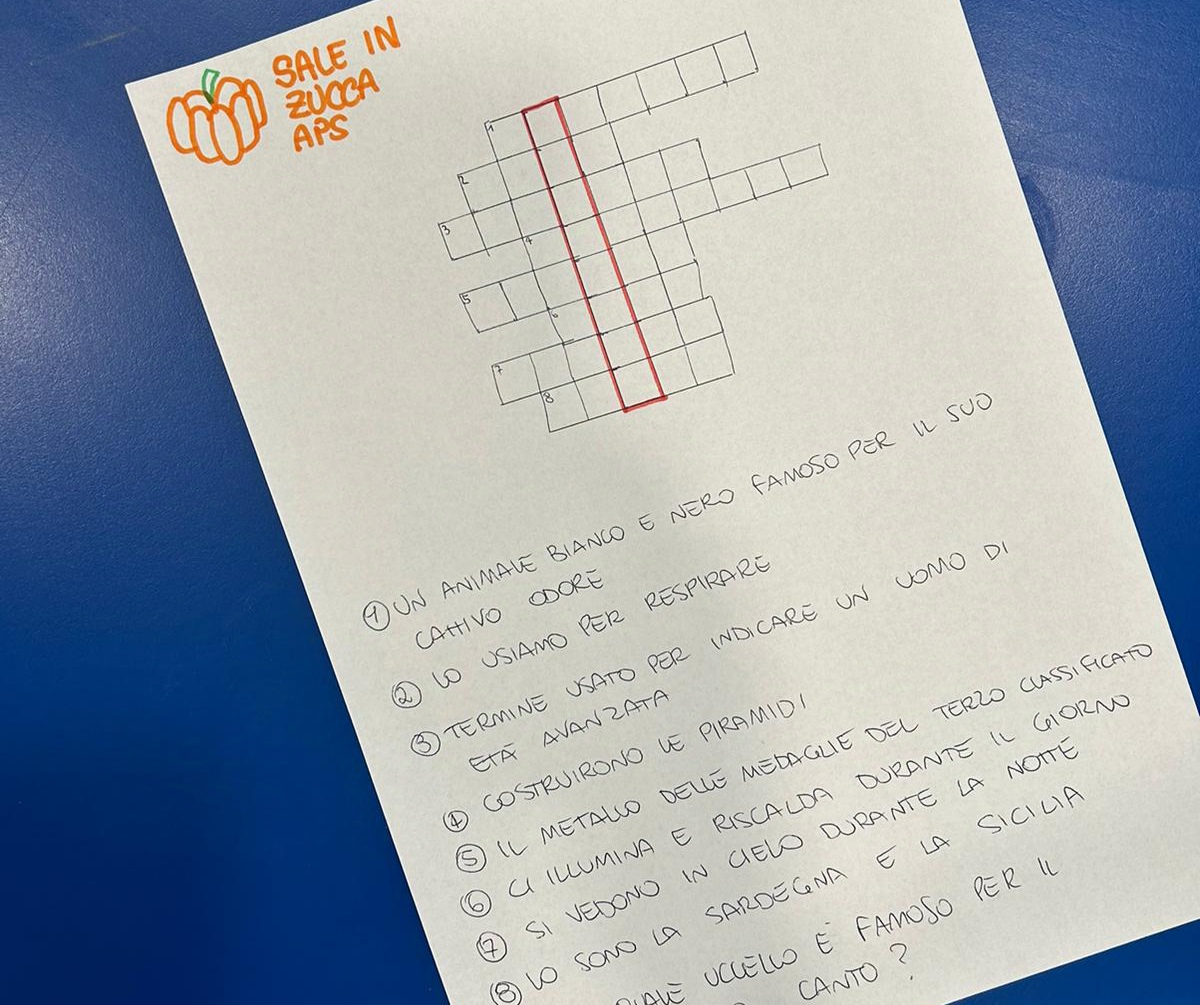 SALE IN
ZUCCA
APS
1
2
3
4
5
6
7
8
① UN ANIMALE BIANCO E NERO FAMOSO PER IL SUO
CATTIVO ODORE
② LO USIAMO PER RESPIRARE
③ TERMINE USATO PER INDICARE UN UOMO DI
ETÀ AVANZATA
④ COSTRUIRONO LE PIRAMIDI
⑤ IL METALLO DELLE MEDAGLIE DEL TERZO CLASSIFICATO
⑥ CI ILLUMINA E RISCALDA DURANTE IL GIORNO
⑦ SI VEDONO IN CIELO DURANTE LA NOTTE
⑧ LO SONO LA SARDEGNA E LA SICILIA
QUALE UCCELLO È FAMOSO PER IL
CANTO ?